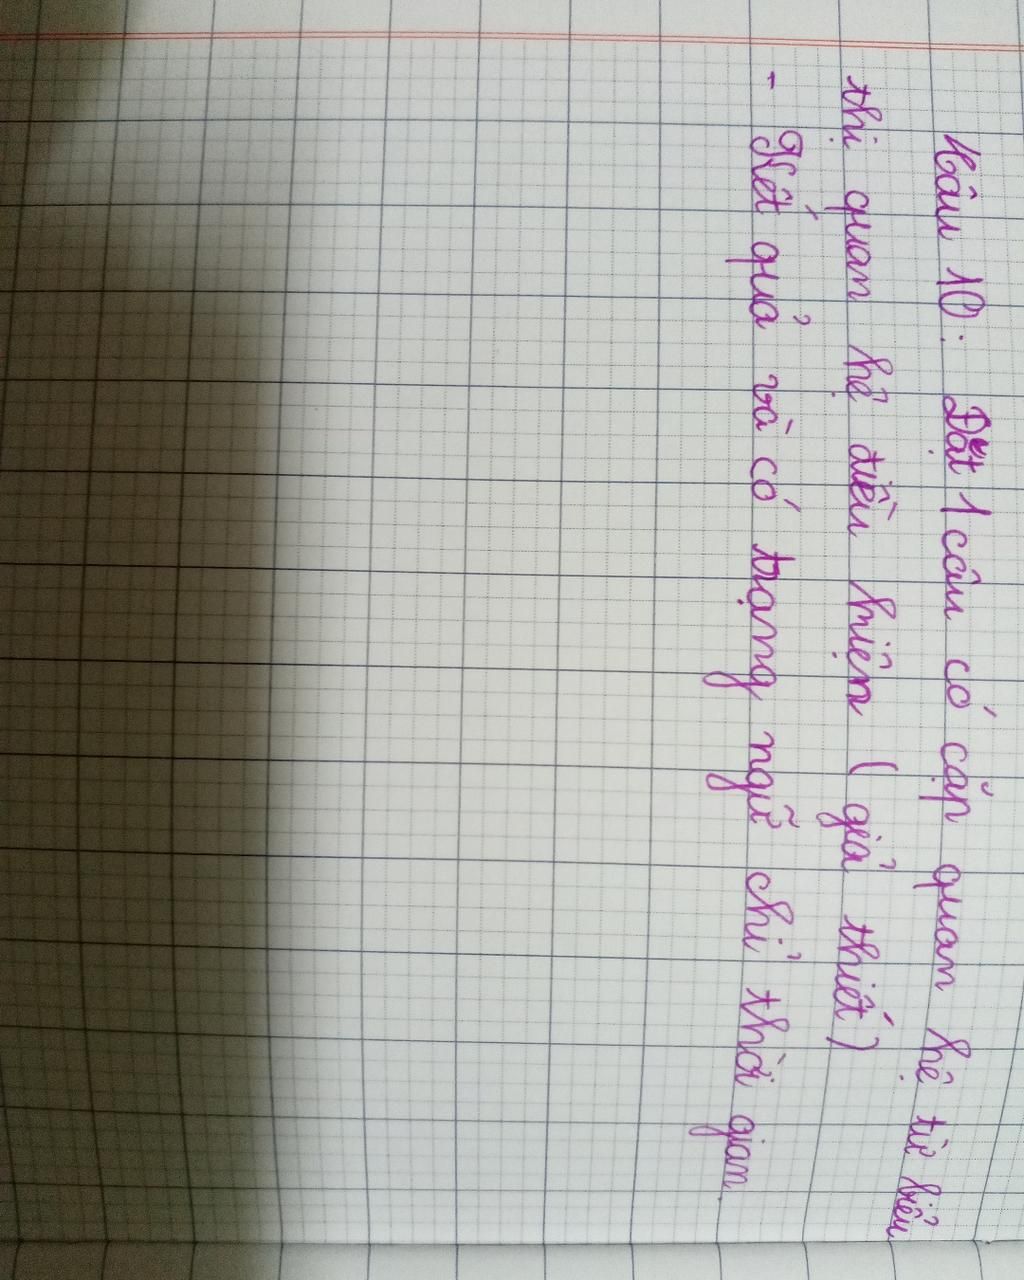 Câu 10: Đặt 1 câu có cặp quan hệ từ biểu
thị quan hệ điều kiện (giả thiết)
- Kết quả và có trạng ngữ chỉ thời gian.